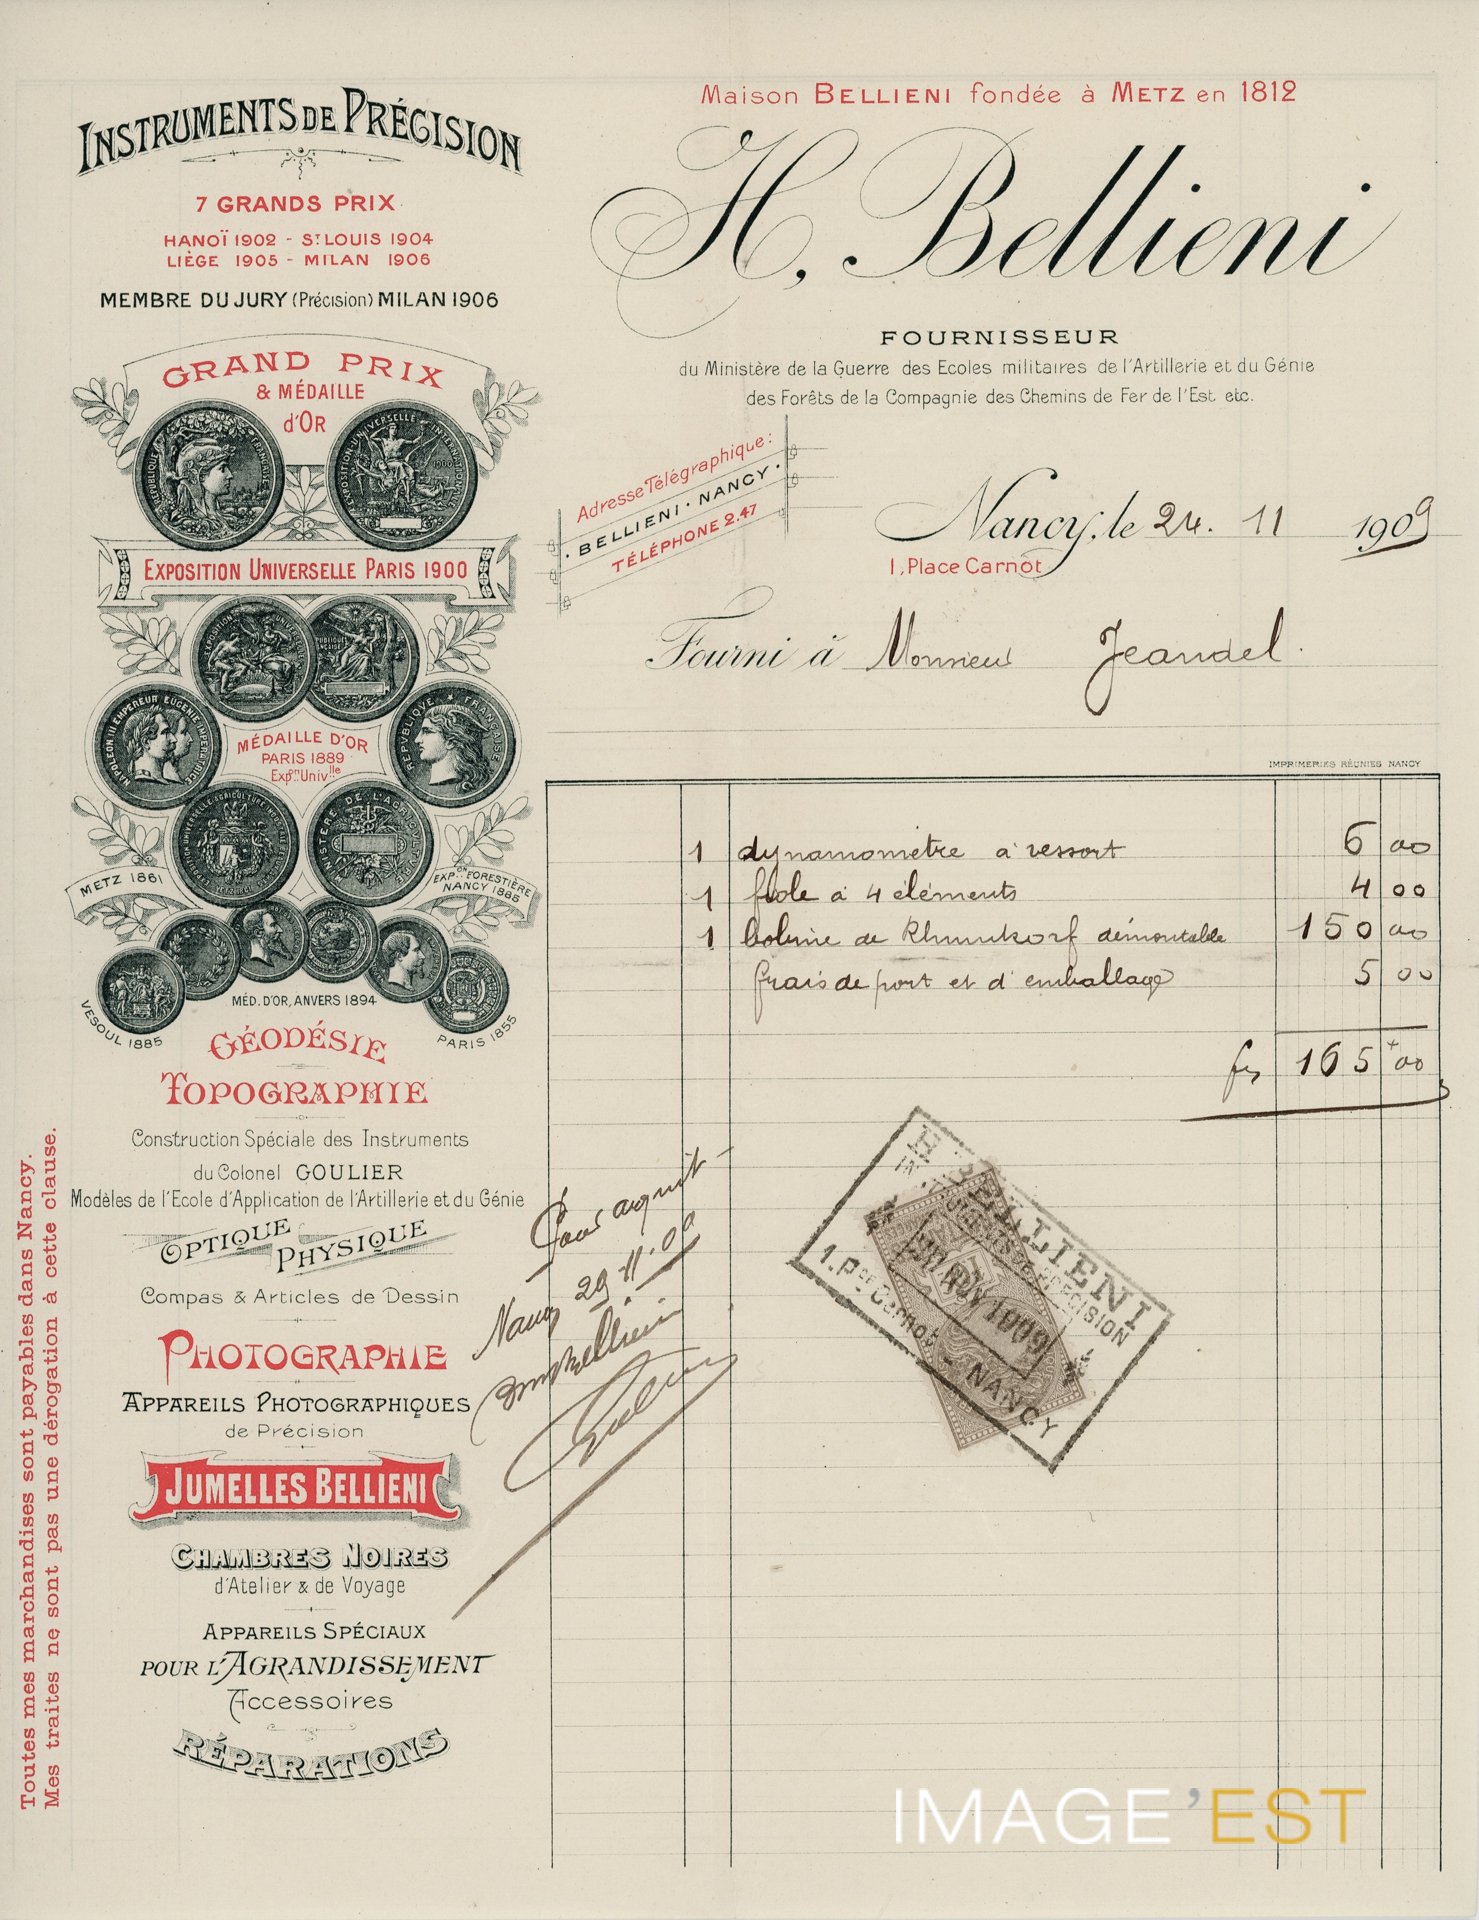 Maison BELLIENI fondée à METZ en 1812
INSTRUMENTS DE PRÉCISION
7 GRANDS PRIX
HANOÏ 1902 - ST LOUIS 1904
LIÈGE 1905 - MILAN 1906
MEMBRE DU JURY (Précision) MILAN 1906
GRAND PRIX
& MÉDAILLE
d'OR
EXPOSITION UNIVERSELLE PARIS 1900
NAPOLEON III EMPEREUR EUGENIE IMPERATRICE
REPUBLIQUE FRANÇAISE
MÉDAILLE D'OR
PARIS 1889
Expon Univlle
MINISTERE DE L'AGRICULTURE
METZ 1861
EXPON FORESTIÈRE
NANCY 1885
MÉD. D'OR, ANVERS 1894
VESOUL 1885
PARIS 1855
GÉODÉSIE
TOPOGRAPHIE
Construction Spéciale des Instruments
du Colonel GOULIER
Modèles de l'Ecole d'Application de l'Artillerie et du Génie
OPTIQUE
PHYSIQUE
Compas & Articles de Dessin
PHOTOGRAPHIE
APPAREILS PHOTOGRAPHIQUES
de Précision
JUMELLES BELLIENI
CHAMBRES NOIRES
d'Atelier & de Voyage
APPAREILS SPÉCIAUX
POUR L'AGRANDISSEMENT
Accessoires
RÉPARATIONS
Toutes mes marchandises sont payables dans Nancy.
Mes traites ne sont pas une dérogation à cette clause.
H. Bellieni
FOURNISSEUR
du Ministère de la Guerre des Ecoles militaires de l'Artillerie et du Génie
des Forêts de la Compagnie des Chemins de Fer de l'Est etc.
Adresse Télégraphique:
BELLIENI · NANCY
TÉLÉPHONE 2.47
Nancy, le 24. 11 1909
1, Place Carnot
Fourni à Monsieur Jeandel.
IMPRIMERIES RÉUNIES NANCY
1 dynamomètre à ressort 6 00
1 fiole à 4 éléments 4 00
1 bobine de Rhumkorf démontable 150 00
frais de port et d'emballage 5 00
frs 165 00
Pour acquit
Nancy 29.11.09
H. BELLIENI
INSTRUMENTS DE PRÉCISION
NOV 1909
1. Pce Carnot - NANCY
IMAGE'EST